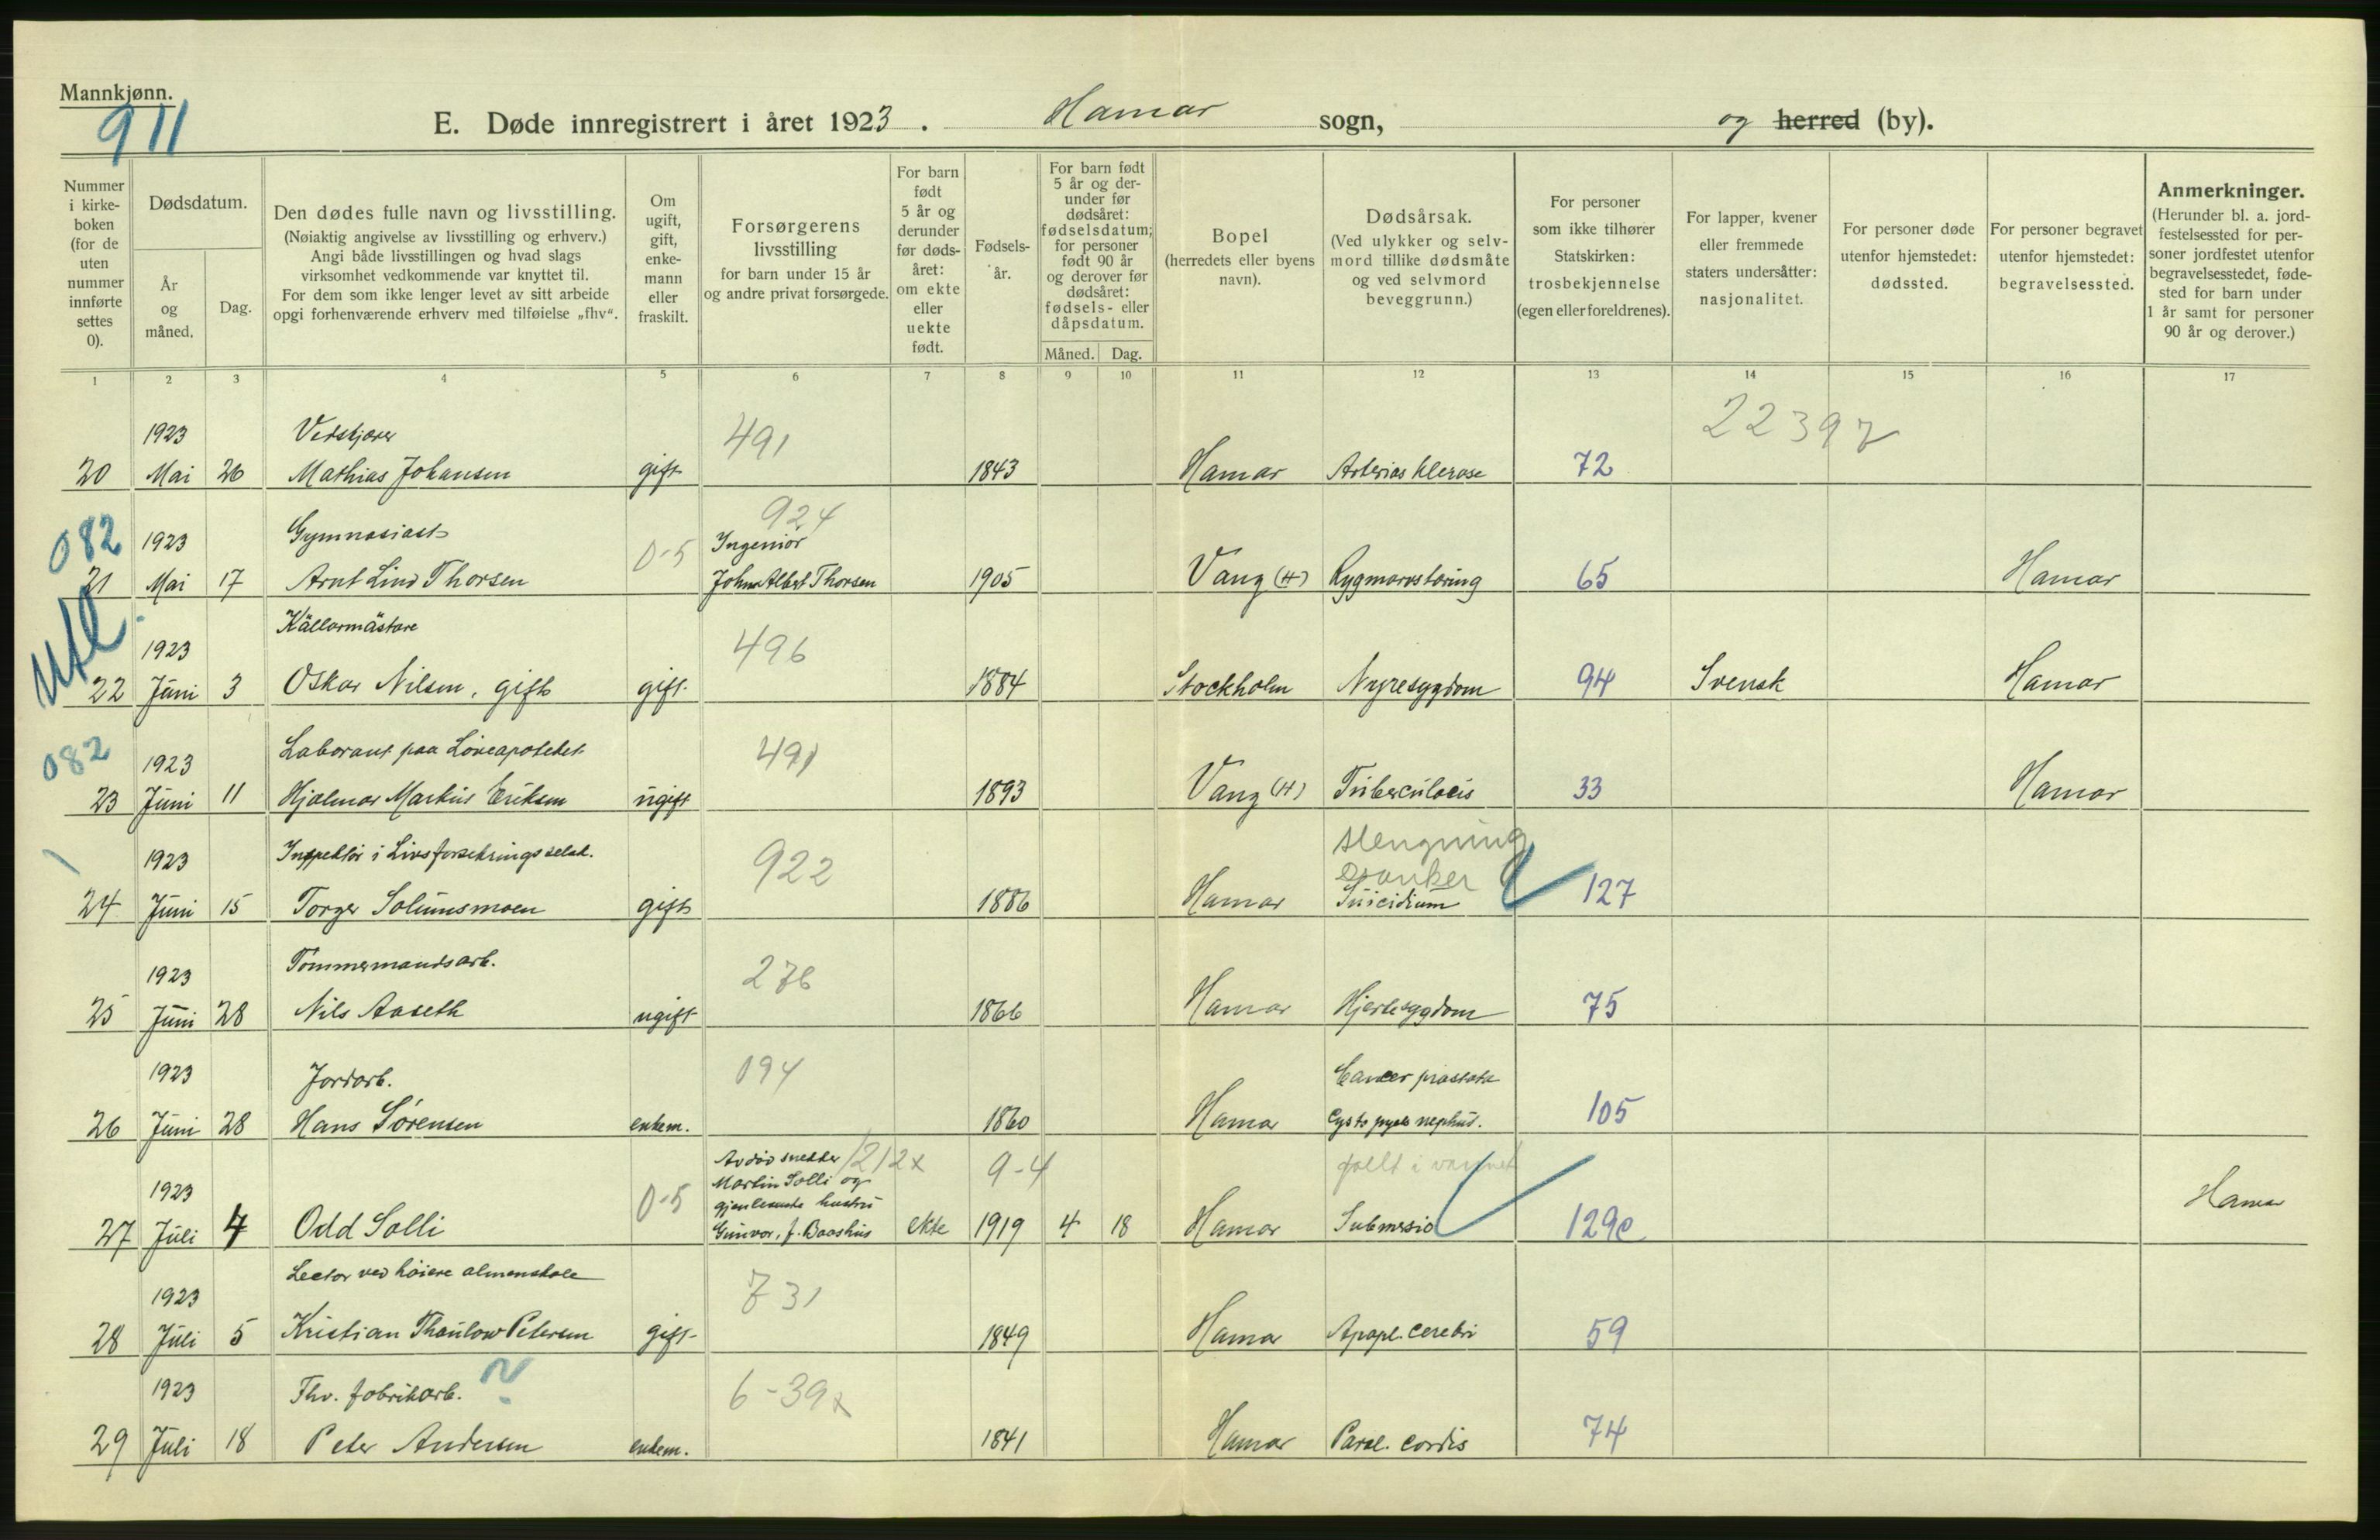 Mannkjønn.
911
E. Døde innregistrert i året 1923. Hamar sogn, og herred (by).
Nummer i kirke-boken (for de uten nummer innførte settes 0).
Dødsdatum.
År og måned.
Dag.
Den dødes fulle navn og livsstilling.
(Nøiaktig angivelse av livsstilling og erhverv.)
Angi både livsstillingen og hvad slags
virksomhet vedkommende var knyttet til.
For dem som ikke lenger levet av sitt arbeide
opgi forhenværende erhverv med tilføielse „fhv“.
Om ugift, gift, enke-mann eller fraskilt.
Forsørgerens livsstilling
for barn under 15 år
og andre privat forsørgede.
For barn født 5 år og derunder før døds-året: om ekte eller uekte født.
Fødsels-år.
For barn født 5 år og der-under før dødsåret: fødselsdatum; for personer født 90 år og derover før dødsåret: fødsels- eller dåpsdatum.
Måned. Dag.
Bopel
(herredets eller byens navn).
Dødsårsak.
(Ved ulykker og selv-mord tillike dødsmåte og ved selvmord beveggrunn.)
For personer som ikke tilhører Statskirken: trosbekjennelse (egen eller foreldrenes).
For lapper, kvener eller fremmede staters undersåtter: nasjonalitet.
For personer døde utenfor hjemstedet: dødssted.
For personer begravet utenfor hjemstedet: begravelsessted.
Anmerkninger.
(Herunder bl. a. jord-festelsessted for per-soner jordfestet utenfor begravelsesstedet, føde-sted for barn under 1 år samt for personer 90 år og derover.)
1 2 3 4 5 6 7 8 9 10 11 12 13 14 15 16 17
1923 Vedskjærer 491 22397
20 Mai 26 Mathias Johansen gift 1843 Hamar Arterias klerose 72
082 1923 Gymnasiast 0-5 924 Ingeniør
21 Mai 17 Arnt Lind Thorsen Johns Albert Thorsen 1905 Vang (H) Rygmarvstæring 65 Hamar
utl. 1923 Källarmästare 496
22 Juni 3 Oskar Nilsen, gift gift 1884 Stockholm Nyresygdom 94 Svensk Hamar
082 1923 Laborant paa Løveapoteket 491
23 Juni 11 Hjalmar Markus Eriksen ugift 1893 Vang (H) Tuberculosis 33 Hamar
1923 Inspektør i Livsforsikringsselsk. 922 Hengning
24 Juni 15 Torger Solumsmoen gift 1886 Hamar Suicidium 127
1923 Tømmermandsarb. 276
25 Juni 28 Nils Aaseth ugift 1866 Hamar Hjertesygdom 75
1923 Jordarb. 094 Cancer prostata
26 Juni 28 Hans Sørensen enkem. 1860 Hamar Cysto pyelo nephrit. 105
1923 0-5 Avdød snekker 1212x 9-4 fallt i vannet
Martin Solli og
gjenlevende hustru Hamar
27 Juli 4 Odd Solli Gunvor, f. Baashus ekte 1919 4 18 Hamar Submersio 129c
1923 Lector ved høiere almenskole 731
28 Juli 5 Kristian Thaulow Petersen gift 1849 Hamar Apopl. cerebri 59
1923 Fhv. fabrikarb. ? 6-39x
29 Juli 18 Peter Andersen enkem. 1841 Hamar Paral. cordis 74